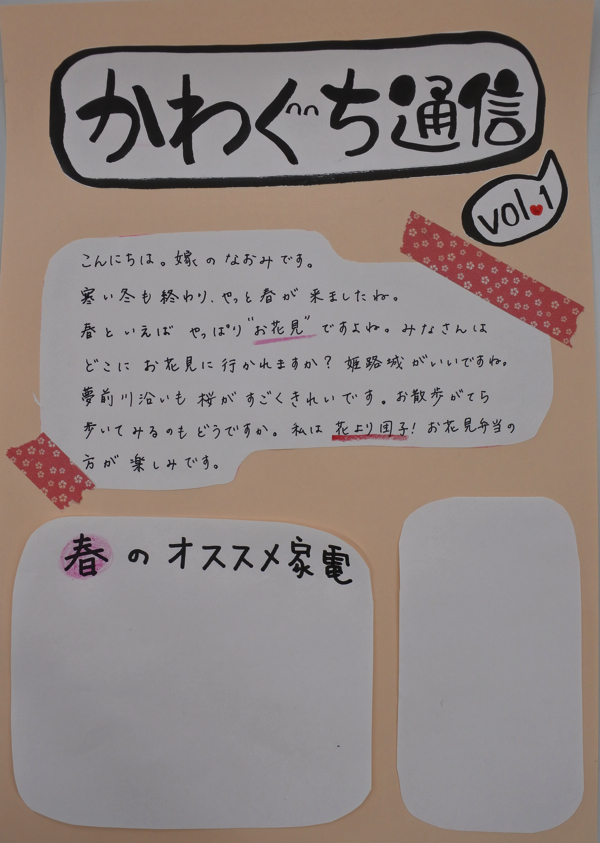 かわぐち通信
vol.1
こんにちは。嫁のなおみです。
寒い冬も終わり、やっと春が来ましたね。
春といえば やっぱり"お花見"ですよね。みなさんは
どこに お花見に行かれますか？姫路城がいいですね。
夢前川沿いも 桜がすごくきれいです。お散歩がてら
歩いてみるのもどうですか。私は 花より団子！お花見弁当の
方が 楽しみです。
春のオススメ家電